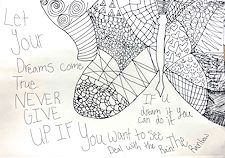 Let
Your
Dreams come
True
NEVER
GIVE
UP IF You Want to See
The Rainbow
Deal with the Rain
If U
dream it you
can do it